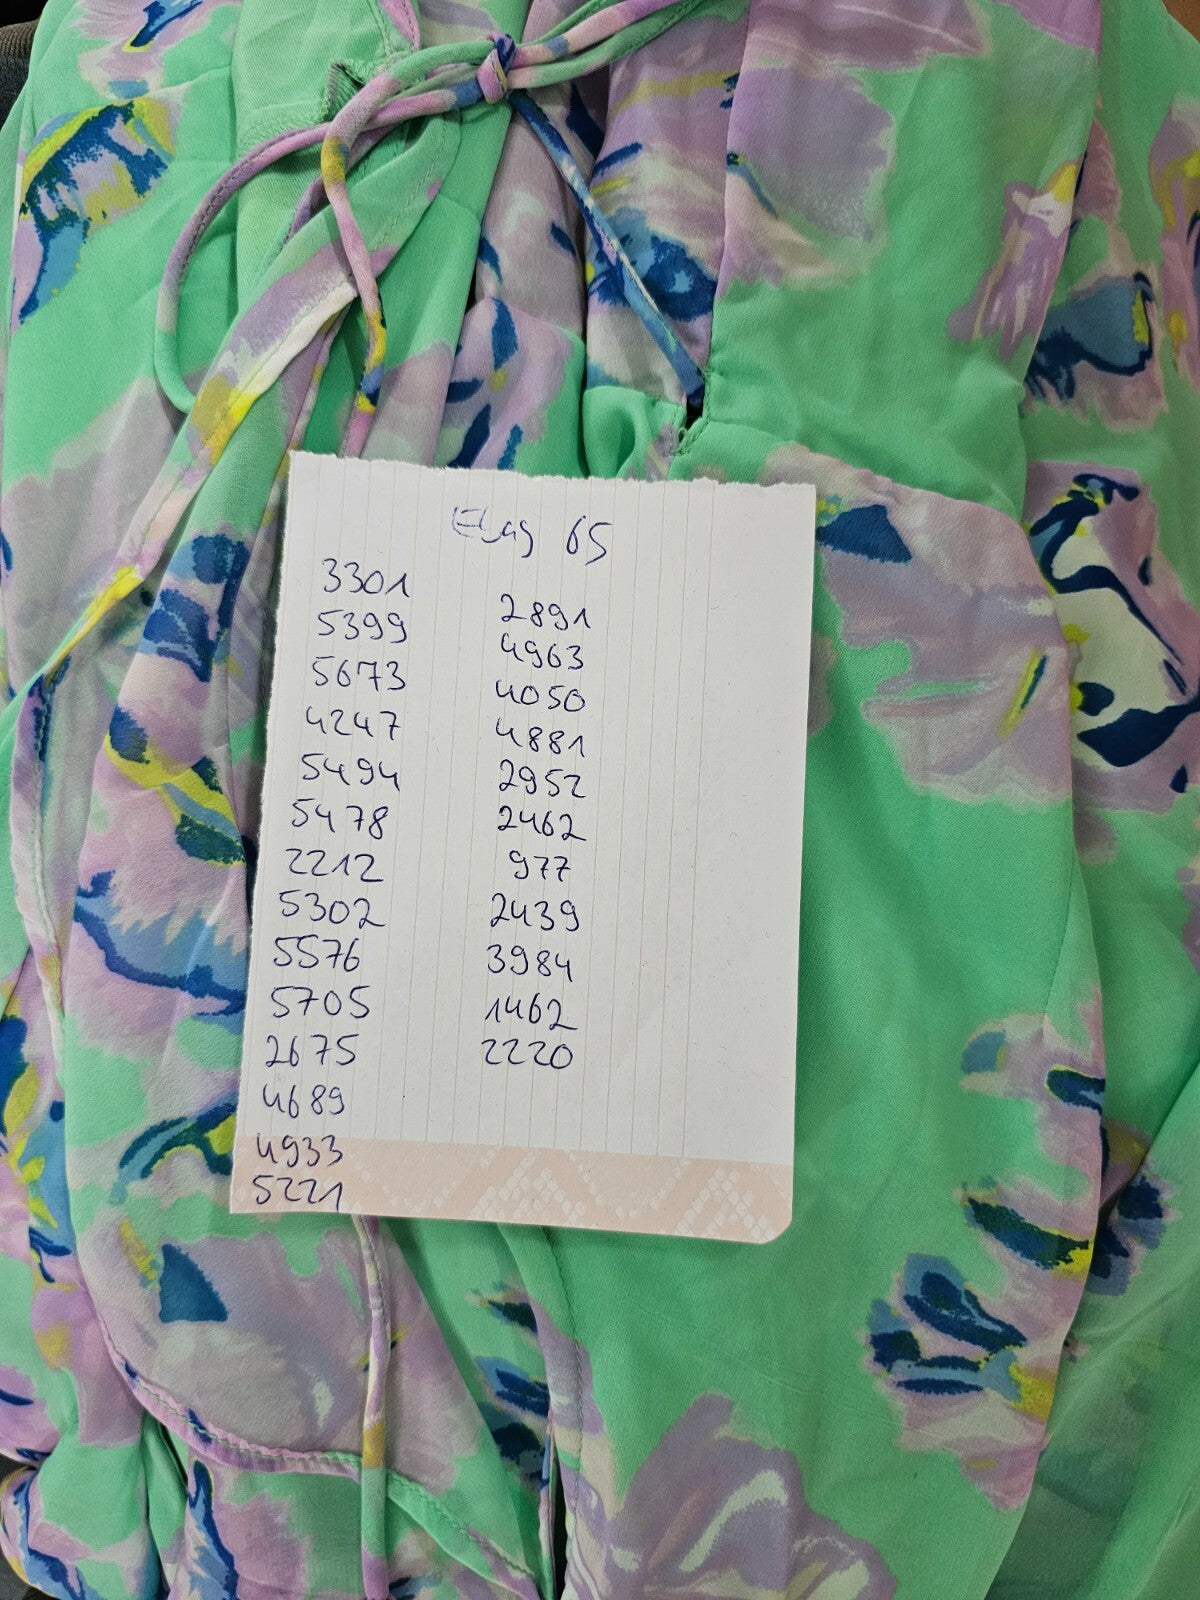 65
3301
5399
5673
4247
5494
5478
2212
5302
5576
5705
2675
4689
4933
5221
2891
4963
4050
4881
2952
2462
977
2439
3984
1462
2220